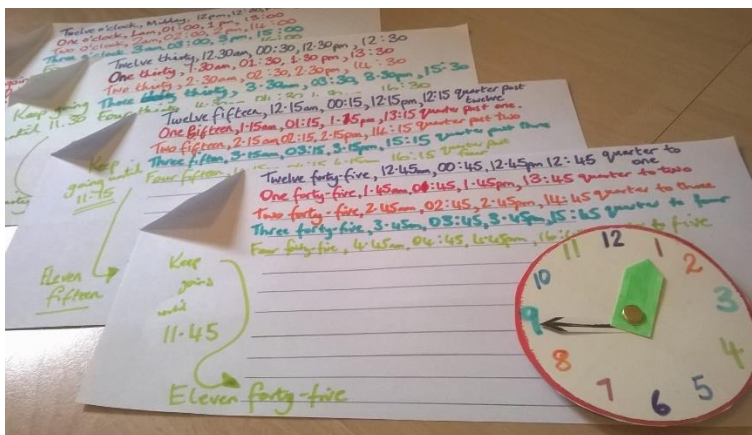 Twelve o'clock, Midday, 12pm, 12:00,
One o'clock, 1am, 01:00, 1pm, 13:00
Two o'clock, 2am, 02:00, 2pm, 14:00
Three o'clock 3am, 03:00, 3pm, 15:00
Twelve thirty, 12.30am, 00:30, 12.30pm, 12:30
One thirty, 1.30am, 01:30, 1.30pm, 13:30
Two thirty, 2.30am, 02:30, 2.30pm, 14:30
Three thirty, 3.30am, 03:30, 3.30pm, 15:30
Four thirty 16:30
Keep going
until 11.30
Twelve fifteen, 12.15am, 00:15, 12.15pm, 12:15 quarter past twelve
One fifteen, 1.15am, 01:15, 1.15pm, 13:15 quarter past one.
Two fifteen, 2.15am 02:15, 2.15pm, 14:15 quarter past two
Three fifteen, 3.15am, 03:15, 3.15pm, 15:15 quarter past three
Four fifteen 16:15 quarter past four
Keep
going until
11-15
Eleven
fifteen
Twelve forty-five, 12.45am, 00:45, 12.45pm 12:45 quarter to one
One forty-five, 1.45am, 01:45, 1.45pm, 13:45 quarter to two
Two forty-five, 2.45am, 02:45, 2.45pm, 14:45 quarter to three
Three forty-five, 3.45am, 03:45, 3.45pm, 15:45 quarter to four
Four forty-five, 4.45am, 04:45, 4.45pm, to five
Keep
going
until
11.45
Eleven forty-five
12
1
2
3
4
5
6
7
8
9
10
11